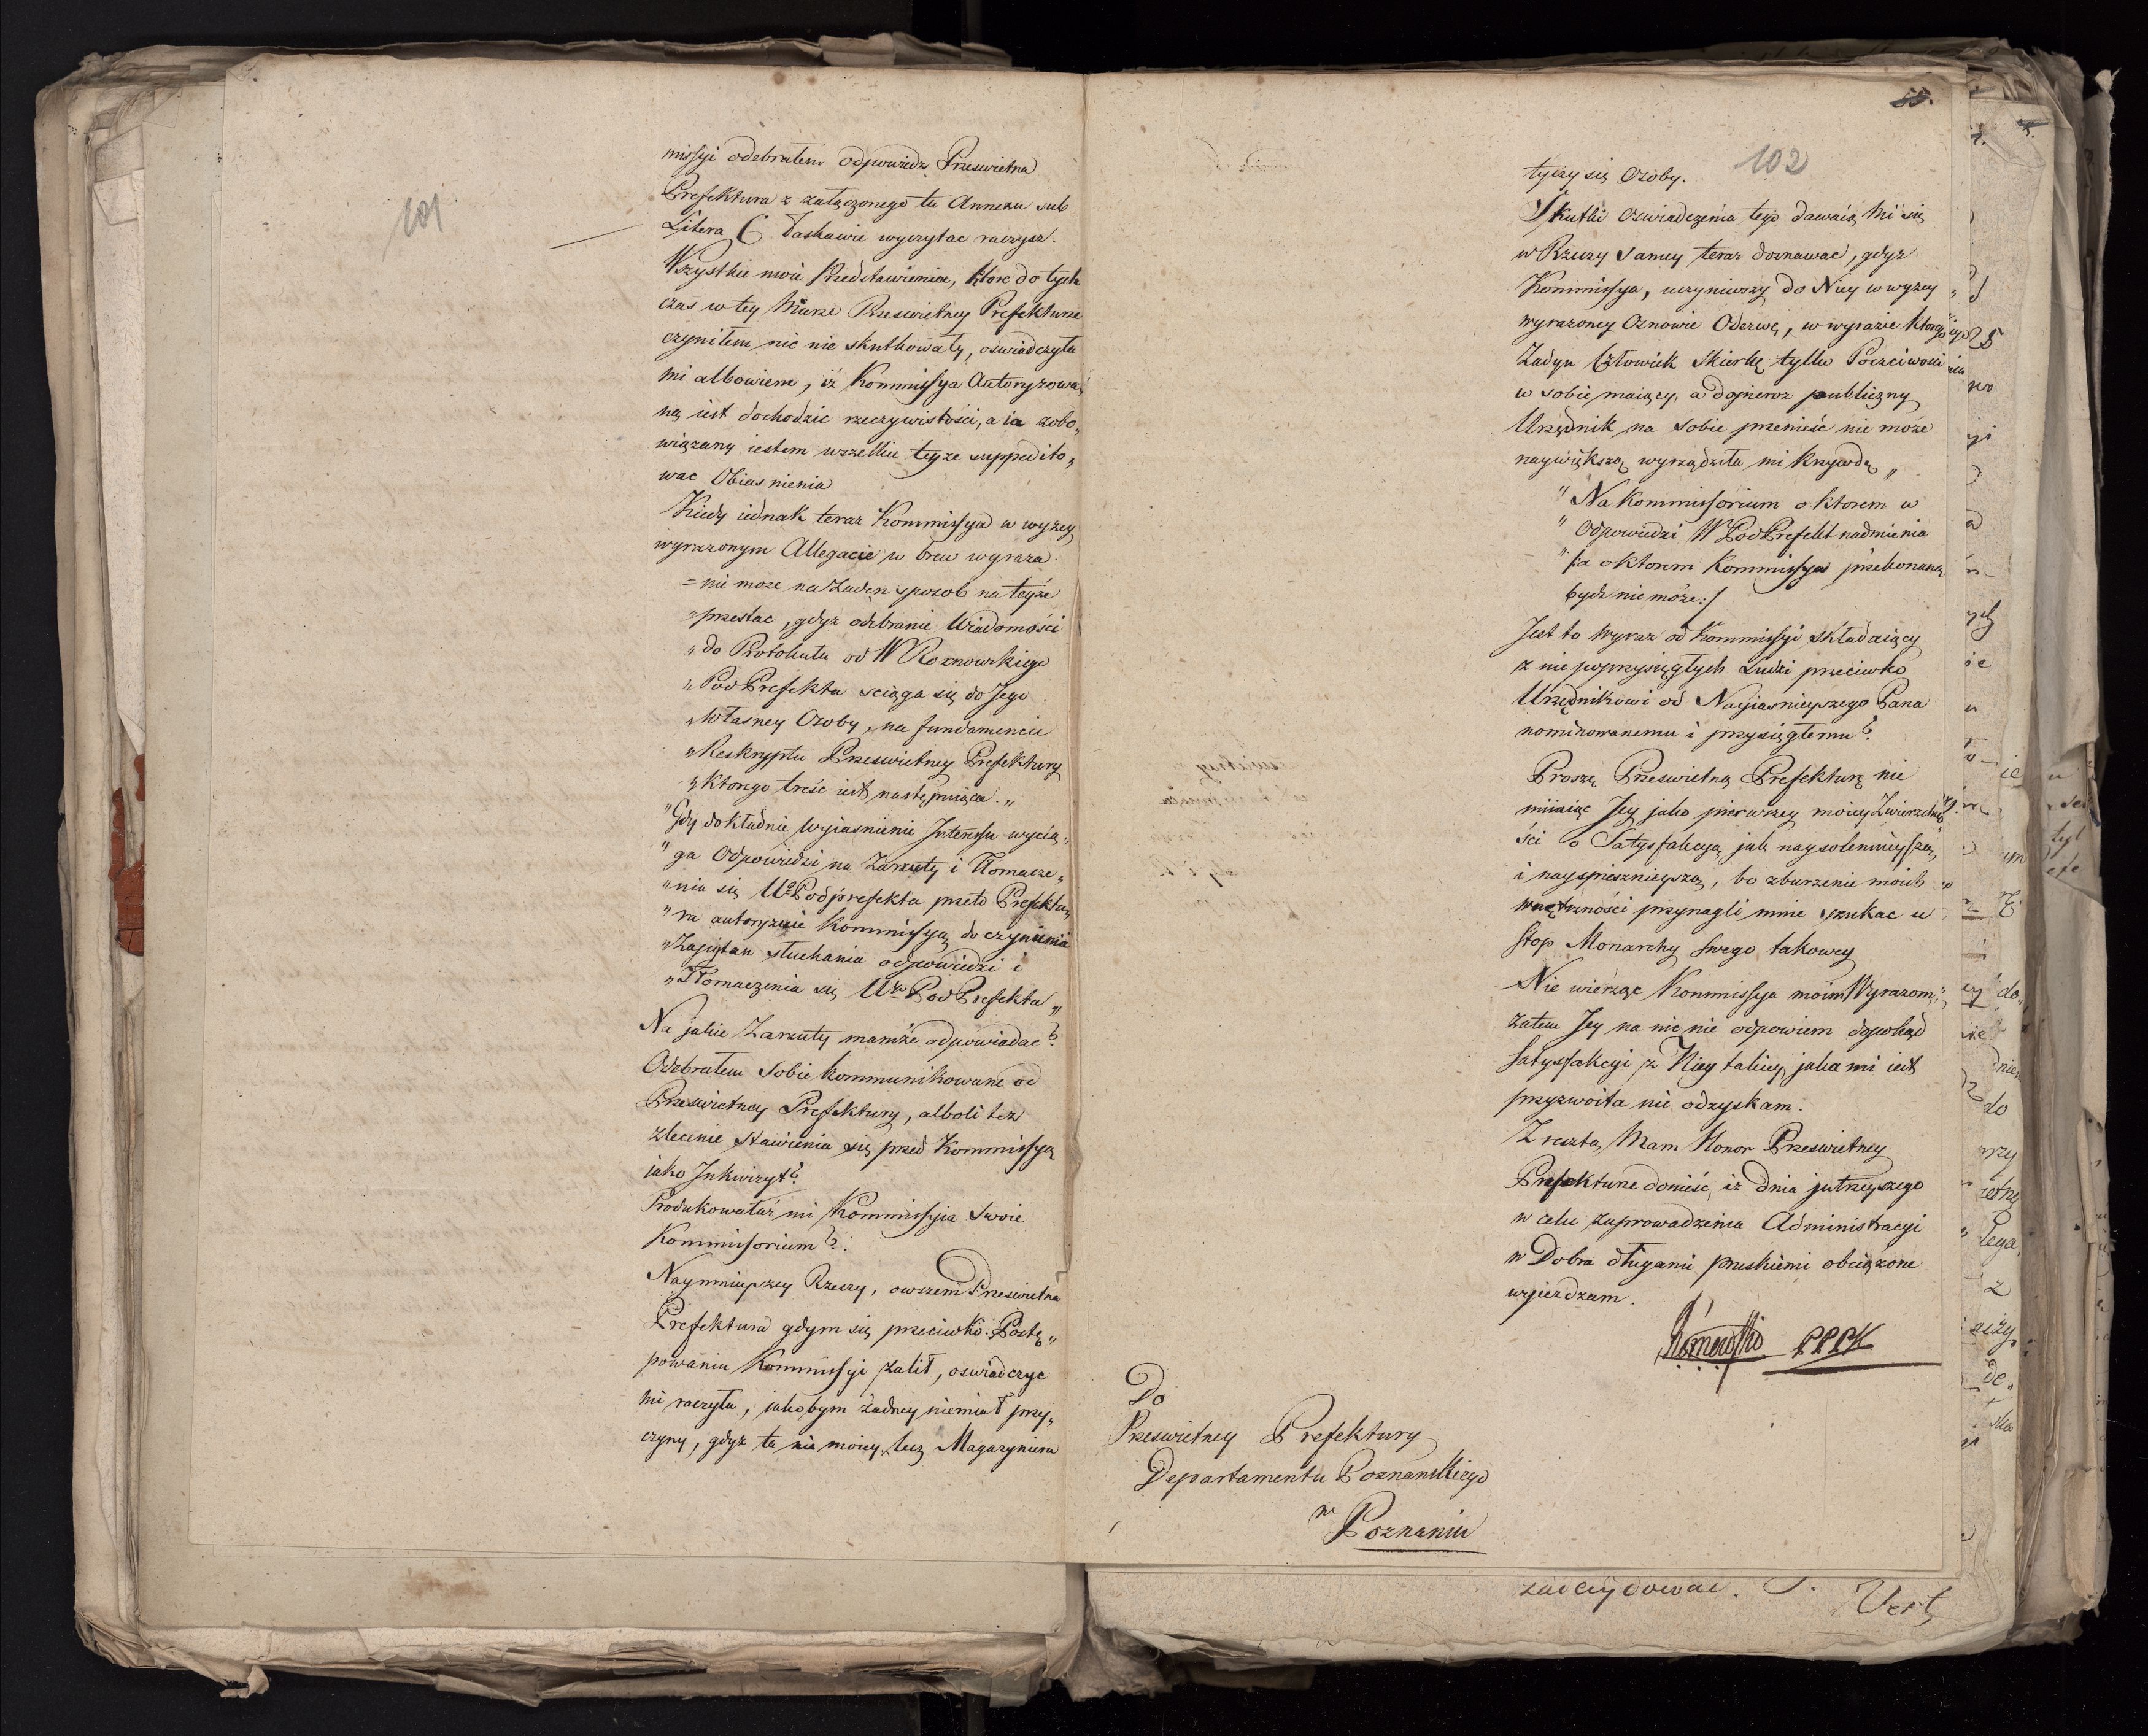 101
missyi odebrałem odpowiedz Przeswietna
Prefektura z załączonego tu Annexu sub
Litera C Łaskawie wyczytac raczysz.
Wszystkie moie Przedstawienia, ktore do tych
czas w tey Mierze Przeswietney Prefekturze
czyniłem nic nie skutkowały, oswiadczyła
mi albowiem, iż Kommissya Autoryzowa„
ną iest dochodzic rzeczywistości, a ia zobo„
wiązany iestem wszelkie teyże suppedito„
wac Obiasnienia
Kiedy iednak teraz Kommissya w wyzey
wyrazonym Allegacie w breu wyraza
= nie moze na Zaden sposob na teyże
„ przestac, gdyz odebranie Wiadomości
„ do Protokułu od W Roznowskiego
„ PodPrefekta sciąga się do Jego
„ Własney Osoby, na fundamencie
„ Reskryptu Przeswietney Prefektury
„ ktorego treść iest następuiąca. „
„ Gdy dokładnie Wyiasnienie Interessu wycią„
„ ga Odpowiedzi na Zarzuty i Tłomacze„
„ nia się Wo Podprefekta przeto Prefektu„
„ ra autoryzuie Kommissyą do czynienia
„ Zapigtan słuchania odpowiedzi i
„ Tłomaczenia się Wo PodPrefekta „
Na jakie Zarzuty mamże odpowiadac?
Odebrałem Sobie kommunikowane od
Przeswietney Prefektury, alboli też
zlecenie stawienia się przed Kommissyą
jako Inkwizyt?
Produkowałaż mi Kommissyia Swoie
Kommissorium?.
Naymnieyszey Rzeczy, owszem Przeswietna
Prefektura gdym się przeciwko Postę„
powaniu Kommissyi żalił, oswiadczyc
mi raczyła, jakobym żadney niemiał przy„
czyny, gdyz ta nie moiey, lecz Magazyniera
102
tyczy się Osoby.
Skutki Oswiadczenia tego dawaią Mi się
w Rzeczy Samey teraz doznawac, gdyz
Kommissya, uczyniwszy do Niey w wyzey
wyrazoney Osnowie Odezwę, w wyrazie ktorego
Zadyn Człowiek Skierkę tylko Poczciwości
w sobie maiący, a dopieroz publiczny
Urzędnik na Sobie przenieść nie może
naywiększą wyrządziła mi krzywdę „
„ Na Kommissorium o ktorem w
„ Odpowiedzi W PodPrefekt nadmienia
„ /:a o ktorem Kommissya przekonaną
bydz nie może:/
Jest to Wyraz od Kommissyi składaiący
z nie poprzysięgłych Ludzi przeciwko
Urzędnikowi od Nayiasnieyszego Pana
nominowanemu i przysięgłemu?.
Proszę Przeswietną Prefekturę nie
miiaiąc Jey jako pierwszey moiey Zwierzchno„
ści o Satysfakcyą jak naysolennieyszą
i nayspieszneyszą, bo zburzenie moich
wnętrzności przynagli mnie szukac u
Stop Monarchy Swego takowey
Nie wierząc Kommissya moim Wyrazom„
zatem Jey na nic nie odpowiem dopokąd
Satysfakcyi z Niey takiey, jaka mi iest
przyzwoita nie odzyskam.
Z resztą Mam Honor Przeswietney
Prefekturze donieść, iż dnia jutrzeyszego
w celu zaprowadzenia Administracyi
w Dobra długami pruskiemi obciążone
wyieżdzam.
PPPK
Do
Przeswietney Prefektury
Departamentu Poznanskiego
w
Poznaniu
Vert